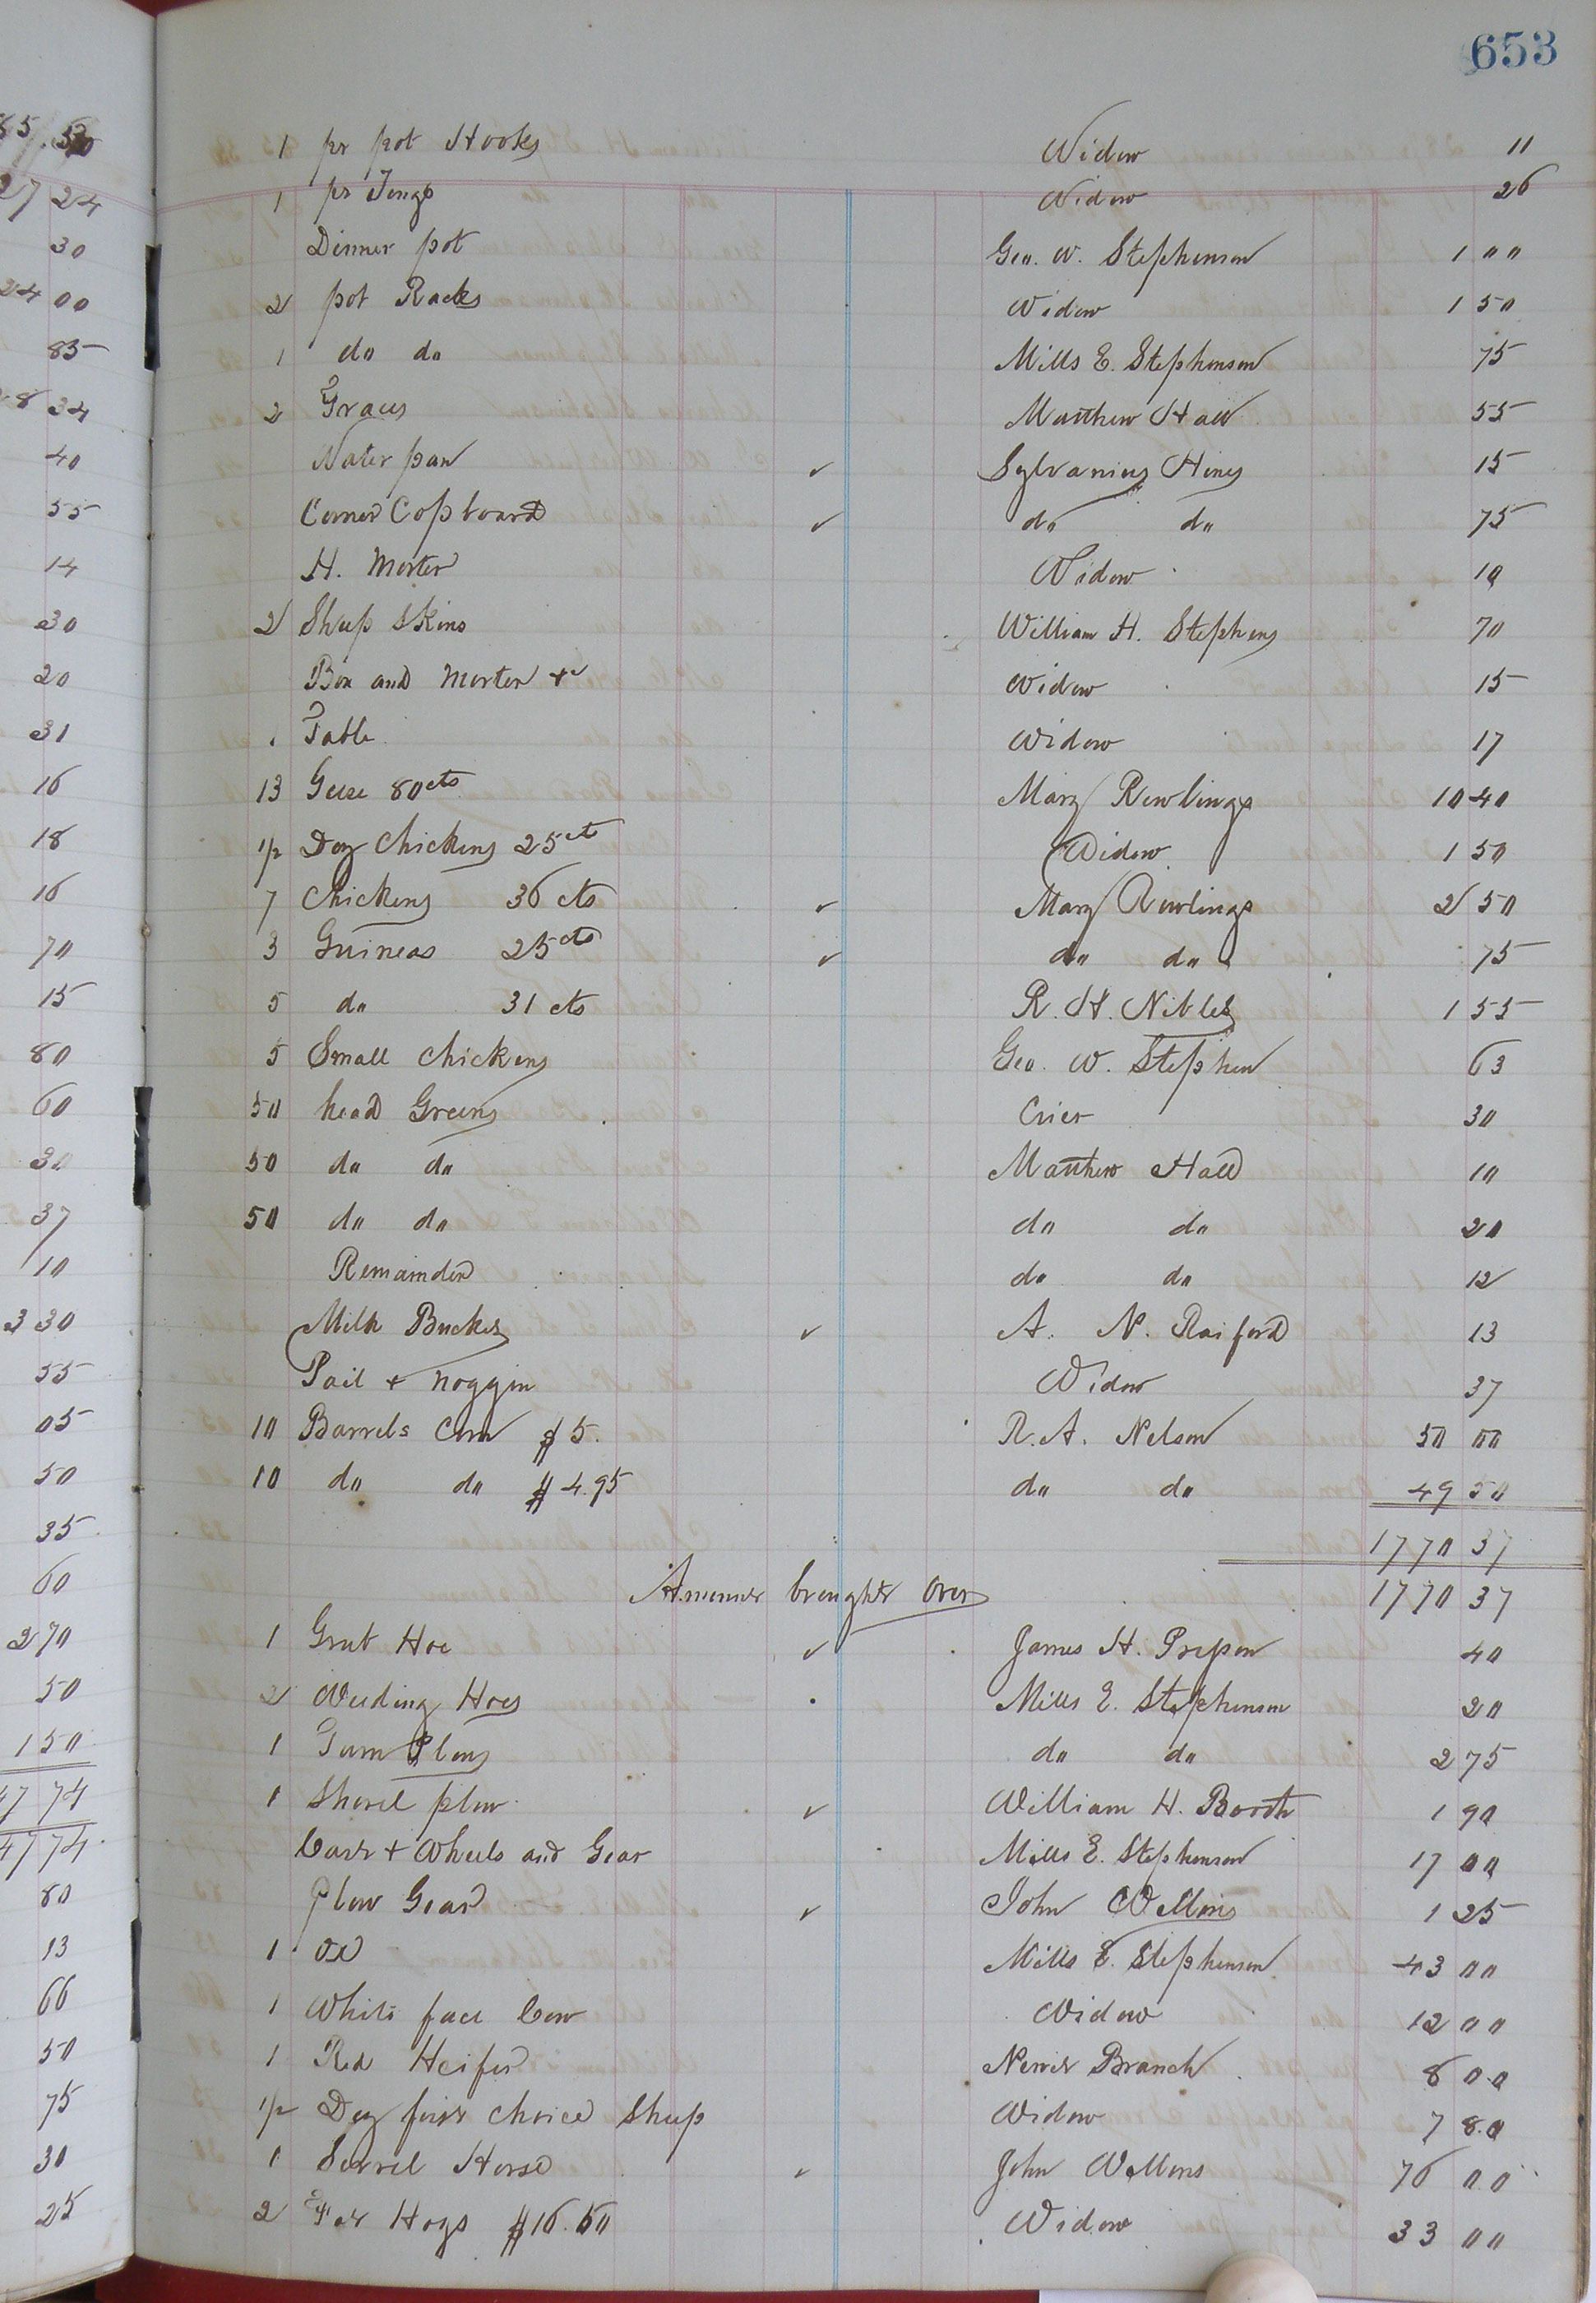 653
1 pr pot Hooks Widow 11
1 pr Tongs Widow 26
Dinner pot Geo. W. Stephenson 1 00
2 pot Racks Widow 1 50
1 do do Mills E. Stephenson 75
2 Matthew Hall 55
Water pan ✓ Sylvanius Hines 15
Corner Copboard ✓ do do 75
H. Morter Widow 10
2 Sheep Skins William H. Stephens 70
Box and Morter +c Widow 15
1 Table Widow 17
13 Geese 80cts Mary Rowlings 10 40
1/2 Doz Chickens 25ct Widow 1 50
7 Chickens 36 cts ✓ Mary Rowlings 2 50
3 Guineas 25cts ✓ do do 75
5 do 31 cts R. H. Niblet 1 55
5 Small Chickens Geo. W. Stephen 63
50 head Greens Crier 30
50 do do Matthew Hall 10
50 do do do do 20
Remainder do do 12
Milk Bucket ✓ A. N. Raiford 13
Pail + noggin Widow 37
10 Barrels Corn $5. R. A. Nelson 50 00
10 do do $4.95 do do 49 50
1770 37
Amount brought over 1770 37
1 Grub Hoe ✓ James H. Pretson 40
2 Weeding Hoes Mills E. Stephenson 20
1 Turn Plow do do 2 75
1 Shovel plow ✓ William H. Booth 1 90
Cart + Wheels and Gear Mills E. Stephenson 17 00
Plow Gear ✓ John Wellons 1 25
1 Ox Mills E. Stephenson 43 00
1 White face Cow Widow 12 00
1 Red Heifer Newit Branch 8 00
1/2 Doz first choice Sheep Widow 7 80
1 Sorrel Horse ✓ John Wellons 76 00
2 Fat Hogs $16.50 Widow 33 00